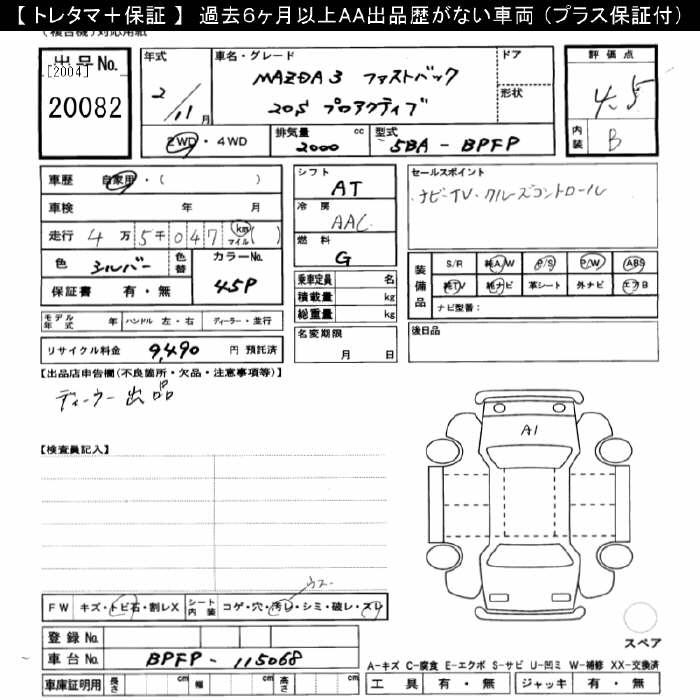 【 トレタマ＋保証 】 過去６ヶ月以上ＡＡ出品歴がない車両（プラス保証付）
(複合機)対応用紙
出品No. [2004] 20082
年式 2/11月
車名・グレード MAZDA3 ファストバック
20S プロアクティブ
ドア
形状
評価点 4.5
内装 B
2WD・4WD
排気量 2000 cc
型式 5BA-BPFP
車歴 自家用・( )
車検 年 月
走行 4万5千047 km マイル( )
色 シルバー 色替 カラーNo. 45P
保証書 有・無
シフト AT
冷房 AAC
燃料 G
乗車定員 名
積載量 kg
総重量 kg
セールスポイント
ナビ・TV・クルーズコントロール
装備品 S/R 純A/W P/S P/W ABS
純TV 純ナビ 革シート 外ナビ エアB
ナビ型番：
モデル年式 年 ハンドル 左・右 ディーラー・並行
名変期限 月 日
後日品
リサイクル料金 9,490 円 預託済
【出品店申告欄(不良箇所・欠品・注意事項等)】
ディーラー出品
A1
【検査員記入】
ウス
FW キズ・トビ石・割レX シート内装 コゲ・穴・汚レ・シミ・破レ・スレ
登録No.
車台No. BPFP-115068
スペア
A-キズ C-腐食 E-エクボ S-サビ U-凹ミ W-補修 XX-交換済
車庫証明用 長さ cm 幅 cm 高さ cm
工具 有・無 ジャッキ 有・無